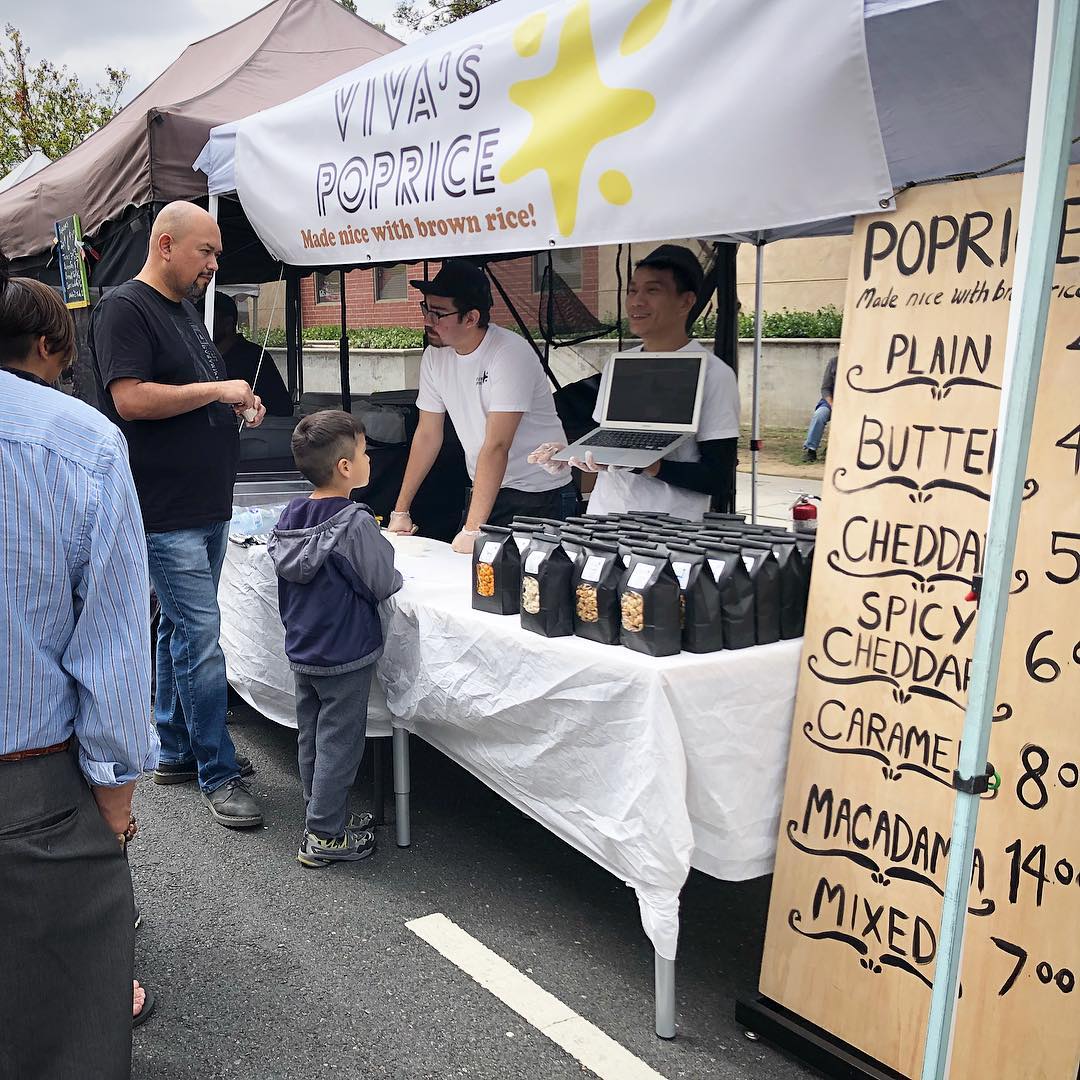 VIVA'S
POPRICE
Made nice with brown rice!
POPRICE
Made nice with brown rice
PLAIN
BUTTE
4
CHEDDA
5
SPICY
CHEDDAR
6
CARAME
8.00
MACADAMIA
14.00
MIXED
7.00